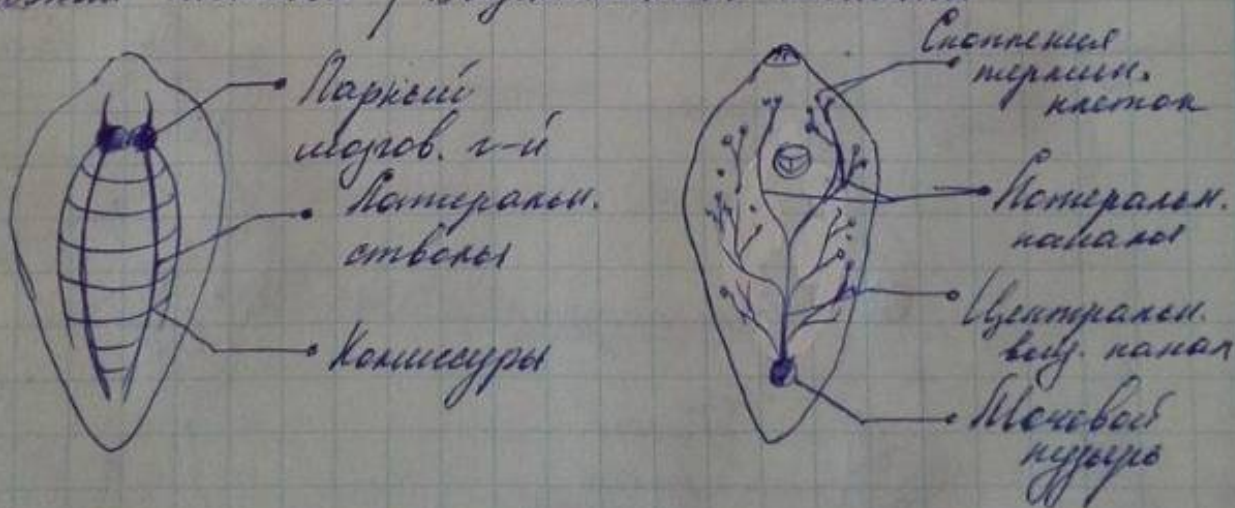 Парный
мозгов. г-й
Латеральн.
стволы
Комиссуры
Скопления
термин.
клеток
Латеральн.
каналы
Централн.
выд. канал
Мочевой
пузырь